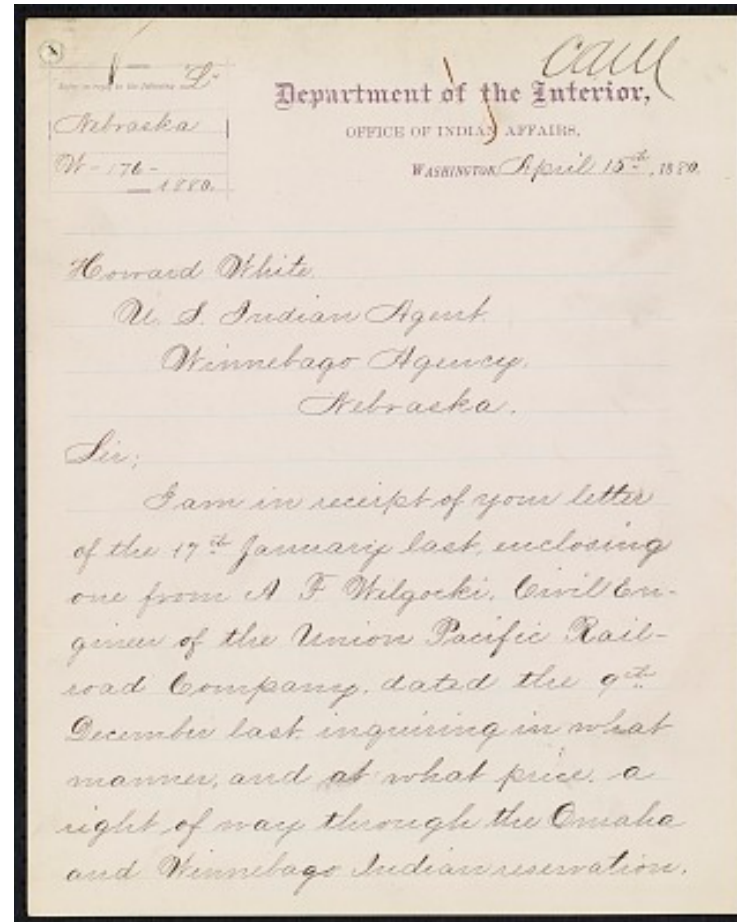 Refer in reply to the following: L
Nebraska
W-176-
1880.
Department of the Interior,
OFFICE OF INDIAN AFFAIRS,
WASHINGTON, April 15th, 1880.
Howard White
U. S. Indian Agent
Winnebago Agency,
Nebraska.
Sir;
I am in receipt of your letter
of the 17th January last, enclosing
one from A F Wilgocki, Civil En-
gineer of the Union Pacific Rail-
road Company, dated the 9th
December last, inquiring in what
manner, and at what price, a
right of way through the Omaha
and Winnebago Indian reservation,